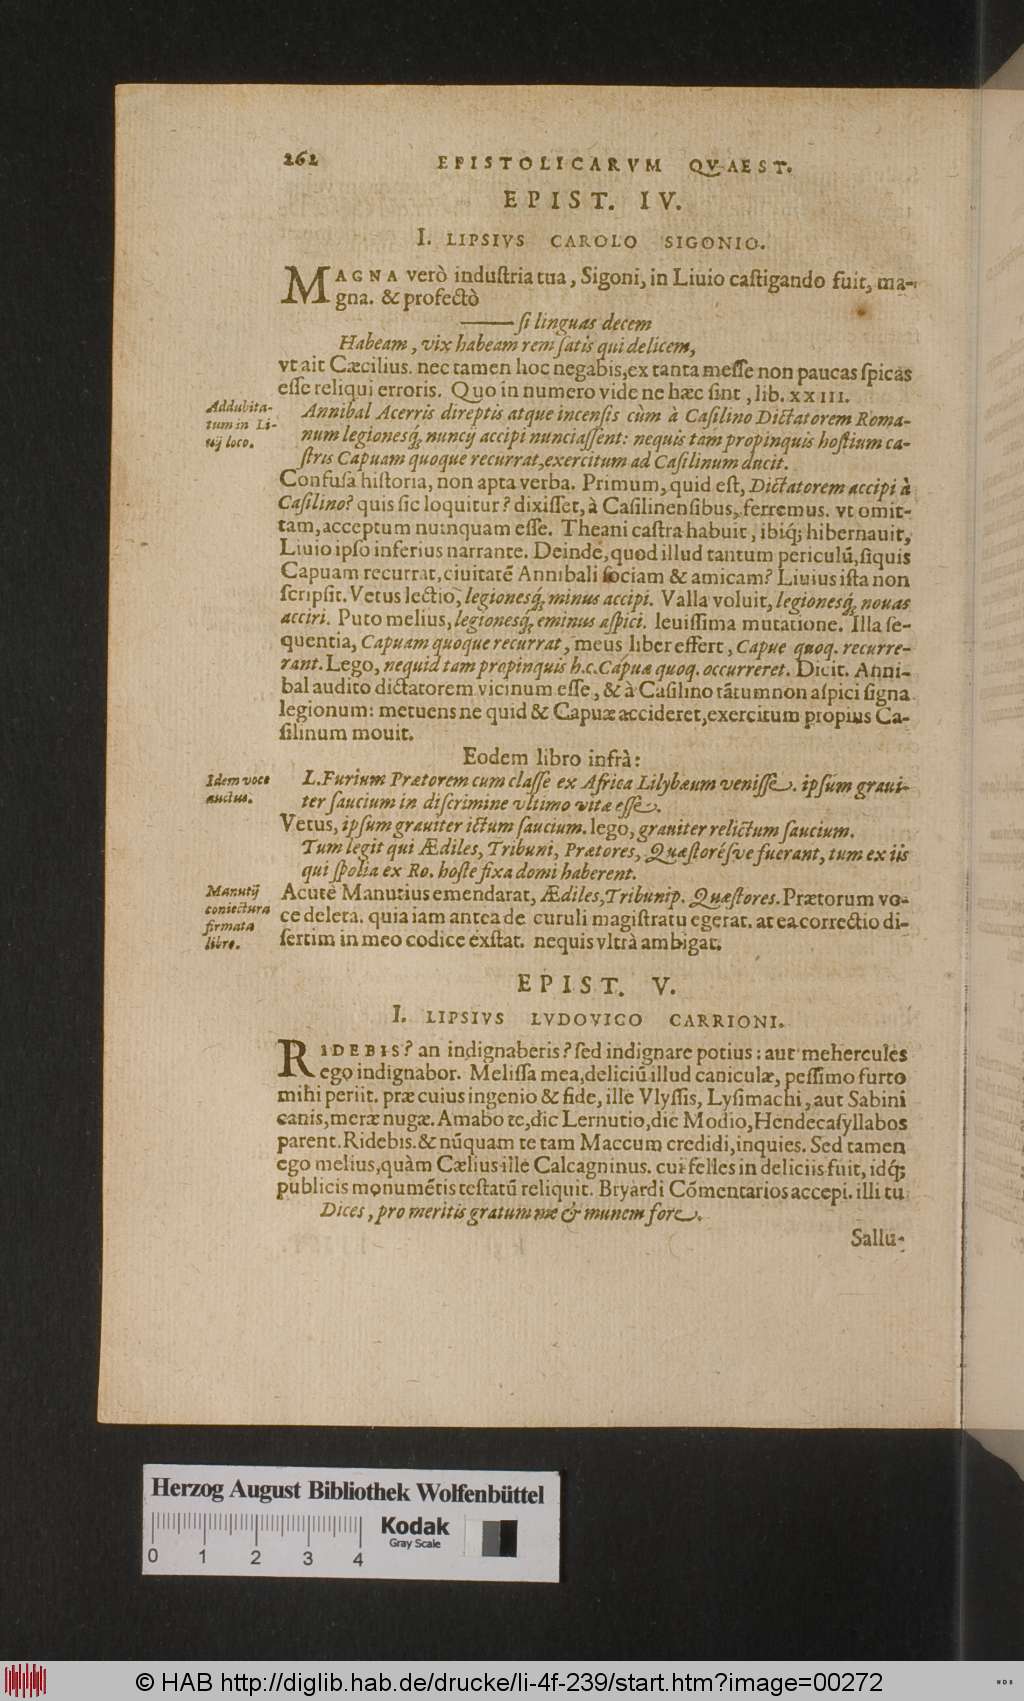 262 EPISTOLICARVM QVAEST.
EPIST. IV.
I. LIPSIVS CAROLO SIGONIO.
MAGNA verò induſtria tua, Sigoni, in Liuio caſtigando fuit, ma-
gna. & profectò
—— ſi linguas decem
Habeam, vix habeam rem ſatis qui delicem,
vt ait Cæcilius. nec tamen hoc negabis, ex tanta meſſe non paucas ſpicas
eſſe reliqui erroris. Quo in numero vide ne hæc ſint, lib. XXIII.
Addubita-
tum in Li-
uij loco.
Annibal Acerris direptis atque incenſis cùm à Caſilino Dictatorem Roma-
num legionesq́; nuncij accipi nunciaſſent: nequis tam propinquis hoſtium ca-
ſtris Capuam quoque recurrat, exercitum ad Caſilinum ducit.
Confuſa hiſtoria, non apta verba. Primum, quid eſt, Dictatorem accipi à
Caſilino? quis ſic loquitur? dixiſſet, à Caſilinenſibus, ferremus. vt omit-
tam, acceptum nunquam eſſe. Theani caſtra habuit, ibiq́; hibernauit,
Liuio ipſo inferius narrante. Deinde, quod illud tantum periculũ, ſiquis
Capuam recurrat, ciuitatẽ Annibali ſociam & amicam? Liuius iſta non
ſcripſit. Vetus lectio, legionesq́; minus accipi. Valla voluit, legionesq́; nouas
acciri. Puto melius, legionesq́; eminus aſpici. leuiſſima mutatione. Illa ſe-
quentia, Capuam quoque recurrat, meus liber effert, Capue quoq. recurre-
rant. Lego, nequid tam propinquis h.c. Capuæ quoq. occurreret. Dicit. Anni-
bal audito dictatorem vicinum eſſe, & à Caſilino tãtum non aſpici ſigna
legionum: metuens ne quid & Capuæ accideret, exercitum propius Ca-
ſilinum mouit.
Eodem libro infrà:
Idem voce
auctus.
L. Furium Prætorem cum claſſe ex Africa Lilybæum veniſſe. ipſum graui-
ter ſaucium in diſcrimine vltimo vitæ eſſe.
Vetus, ipſum grauiter ictum ſaucium. lego, grauiter relictum ſaucium.
Tum legit qui Ædiles, Tribuni, Prætores, Quæſtoréſve fuerant, tum ex iis
qui ſpolia ex Ro. hoſte fixa domi haberent.
Manutij
coniectura
firmata
libro.
Acutè Manutius emendarat, Ædiles, Tribunip. Quæſtores. Prætorum vo-
ce deleta. quia iam antea de curuli magiſtratu egerat. at ea correctio di-
ſertim in meo codice exſtat. nequis vltrà ambigat.
EPIST. V.
I. LIPSIVS LVDOVICO CARRIONI.
RIDEBIS? an indignaberis? ſed indignare potius: aut mehercules
ego indignabor. Meliſſa mea, deliciũ illud caniculæ, peſſimo furto
mihi periit. præ cuius ingenio & fide, ille Vlyſſis, Lyſimachi, aut Sabini
canis, meræ nugæ. Amabo te, dic Lernutio, dic Modio, Hendecaſyllabos
parent. Ridebis. & nũquam te tam Maccum credidi, inquies. Sed tamen
ego melius, quàm Cælius ille Calcagninus. cui felles in deliciis fuit, idq́;
publicis monumẽtis teſtatũ reliquit. Bryardi Cõmentarios accepi. illi tu
Dices, pro meritis gratum me & munem fore.
Sallu-
Herzog August Bibliothek Wolfenbüttel
0 1 2 3 4
Kodak
Gray Scale
© HAB http://diglib.hab.de/drucke/li-4f-239/start.htm?image=00272